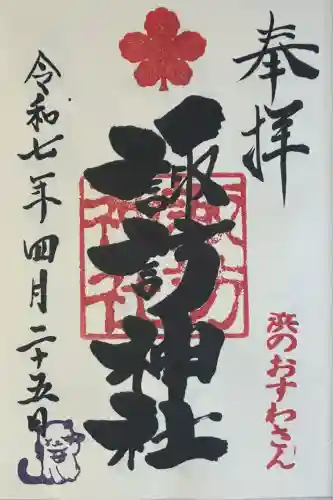 奉拝
のおすわさん
諏訪神社
諏訪
神社
令和七年四月二十五日